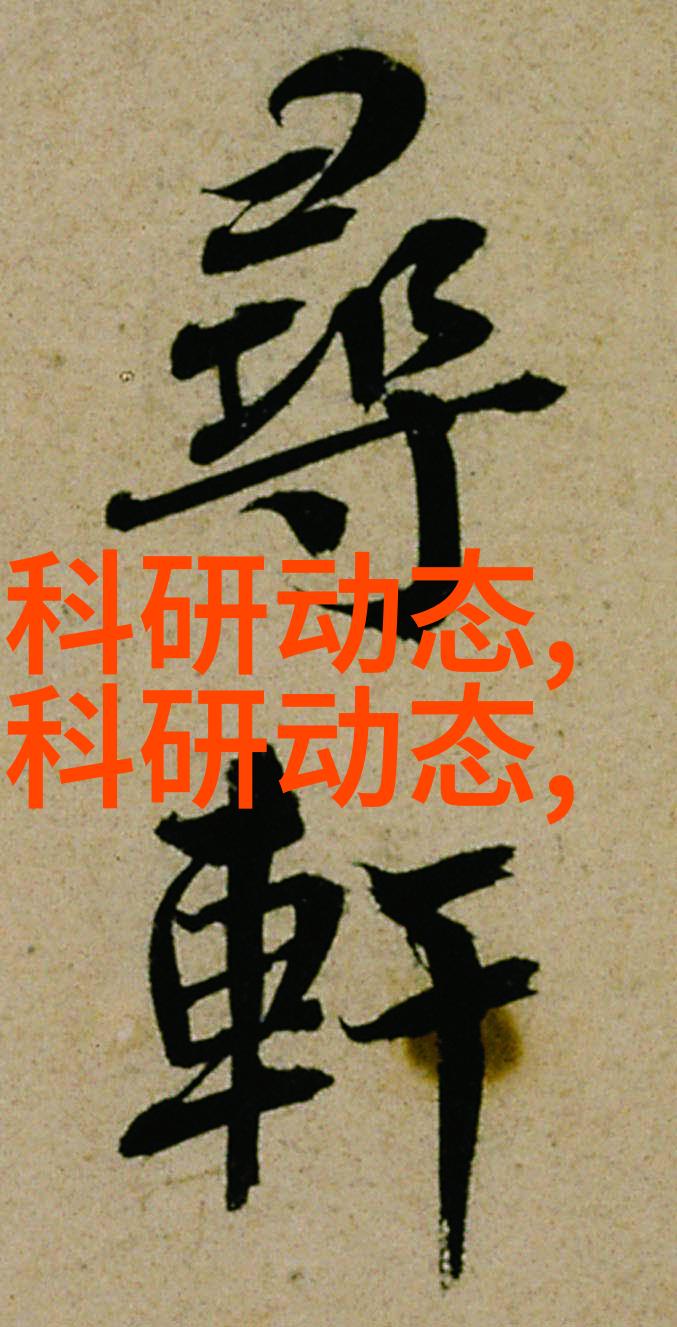 尋
科研动态,
科研动态,
軒